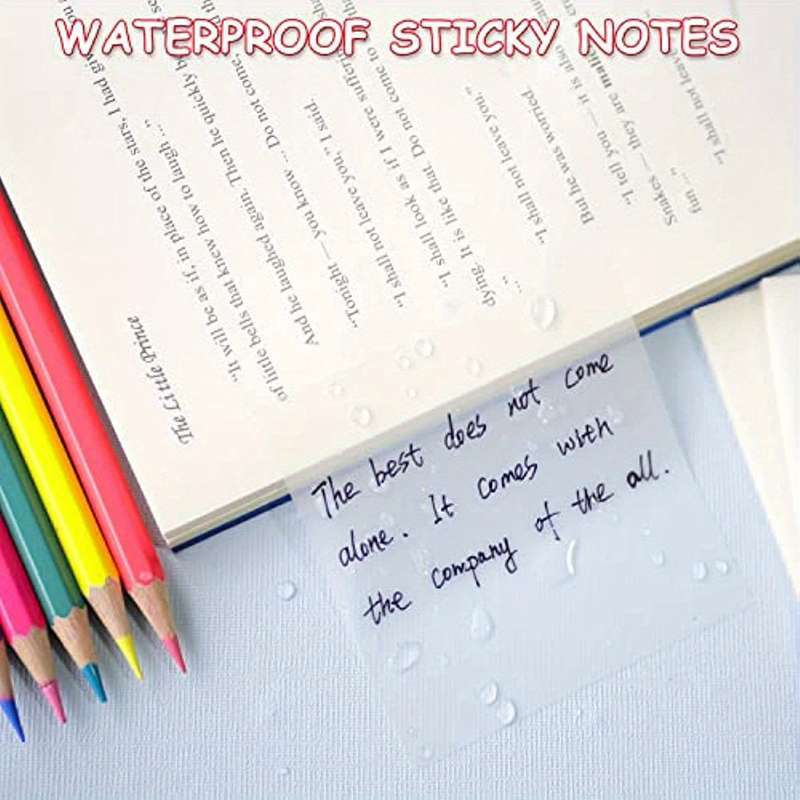 WATERPROOF STICKY NOTES
"It will be as if, in place of the stars, I had giv
of little bells that knew how to laugh ..."
And he laughed again. Then he quickly b
"Tonight — you know ... Do not come
"I shall not leave you," I said.
"I shall look as if I were sufferin
dying. It is like that. Do not come to th
"I shall not leave you."
But he was worried.
"I tell you — it is also
Snakes — they are
fun ..."
"I shall not leave
The Little Prince
The best does not come
alone. It comes with
the company of the all.